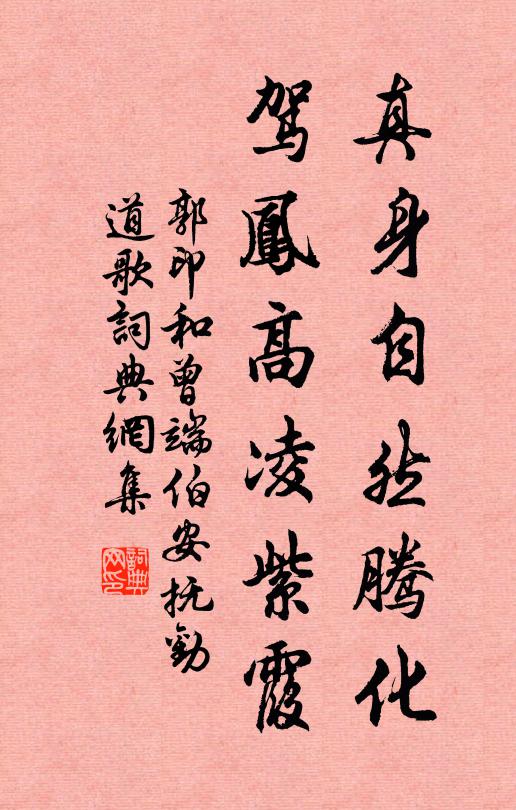 真身自然腾化
驾鳳高凌紫霞
郭印和曾端伯安抚勸
道歌詞典網集
詞典网印